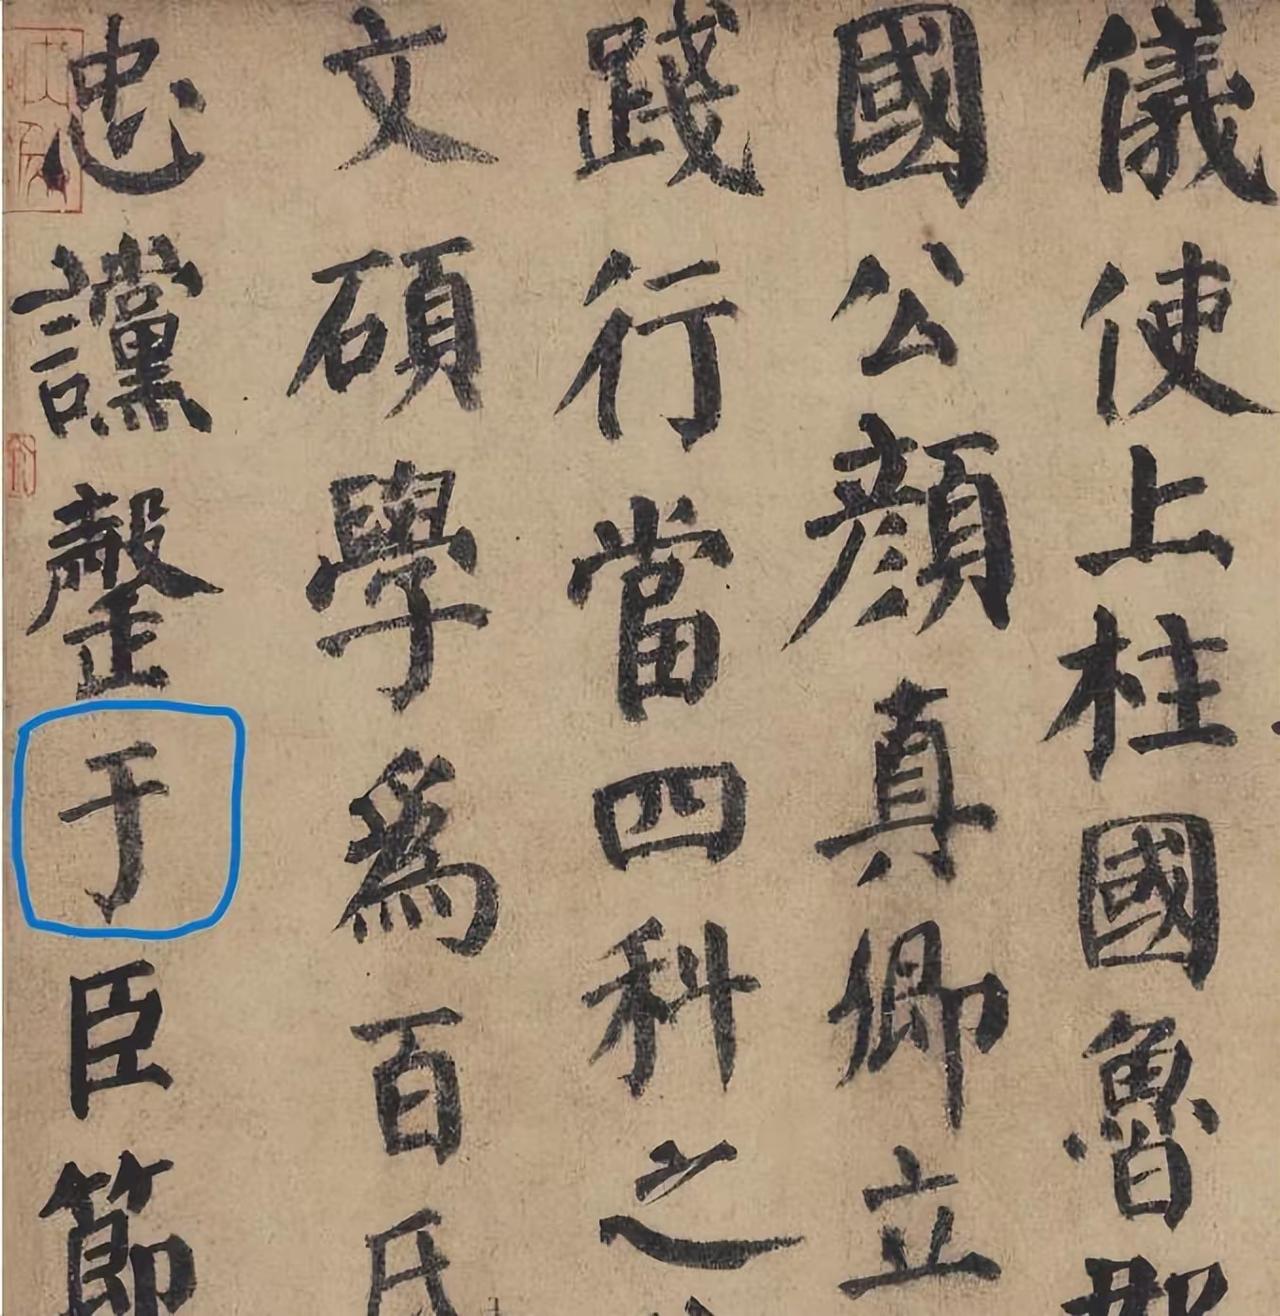 儀使上柱國魯郡
國公顏真卿立
踐行當四科之
文碩學爲百氏
忠讜罄于臣節